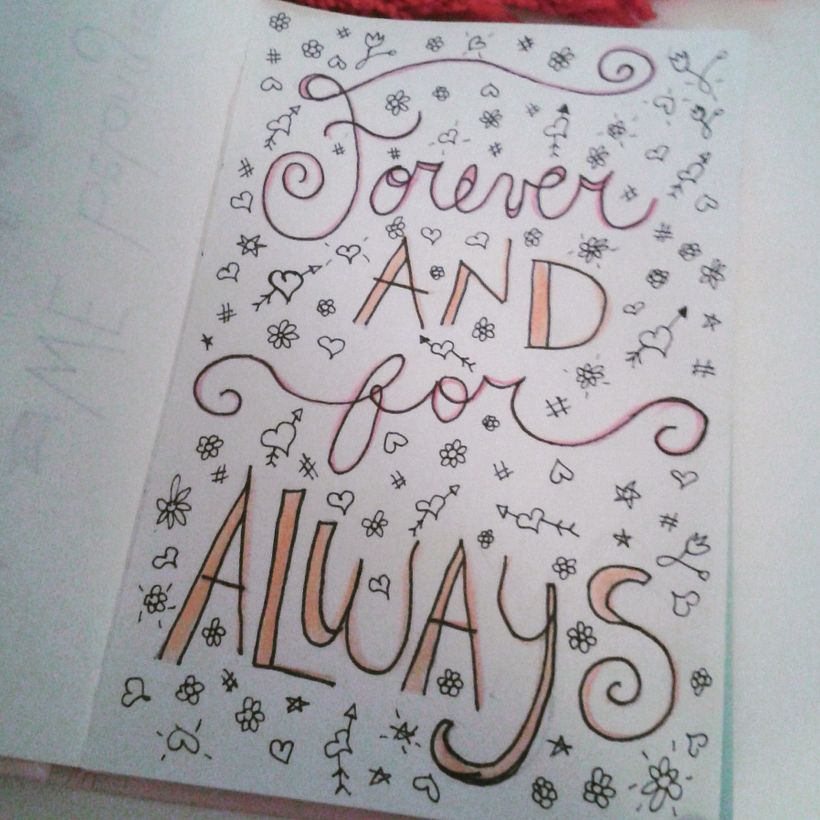 Forever
AND
for
ALWAYS